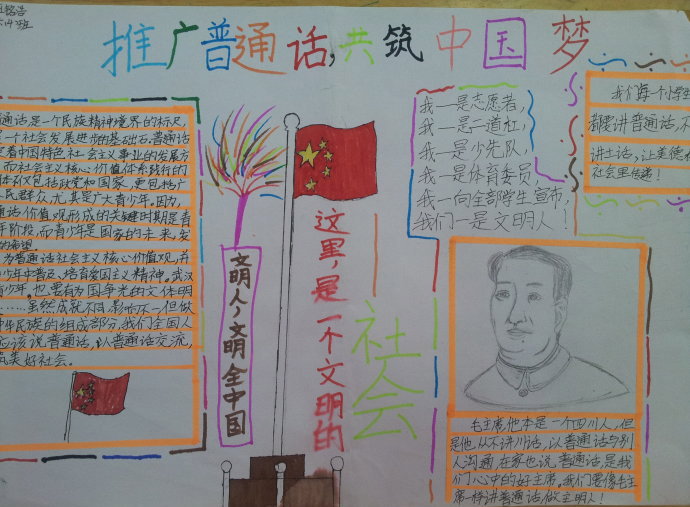 推广普通话,共筑中国梦
通话是一个民族精神境界的标尺,
一个社会发展进步的基础石。普通话
着中国特色社会主义事业的发展方
而社会主义核心价值体系践行的
体不仅包括政党和国家,更包括广
民群众,尤其是广大青少年。因为,
通话价值观形成的关键时期是青
年阶段,而青少年是国家的未来,发
的希望
为普通话社会主义核心价值观,并
少年中普及、培育爱国主义精神。武汉
青少年。也要有为国争光的文体明
……虽然成就不同,影响不一但做
华民族的组成部分,我们全国人
应该说普通话,以普通话交流,
筑美好社会。
文明人,文明全中国
这里,是一个文明的
社会
我一是志愿者,
我一是二道杠,
我一是少先队,
我一是体育委员,
我一向全部学生宣布,
我们一是文明人!
我们每个小学生
都要讲普通话,不
讲土话,让美德在
社会里传递!
毛主席,他本是一个四川人,但
是他从不讲川话,以普通话与别
人沟通,在家也说普通话,是我
们心中的好主席。我们要像毛主
席一样讲普通话,做文明人!